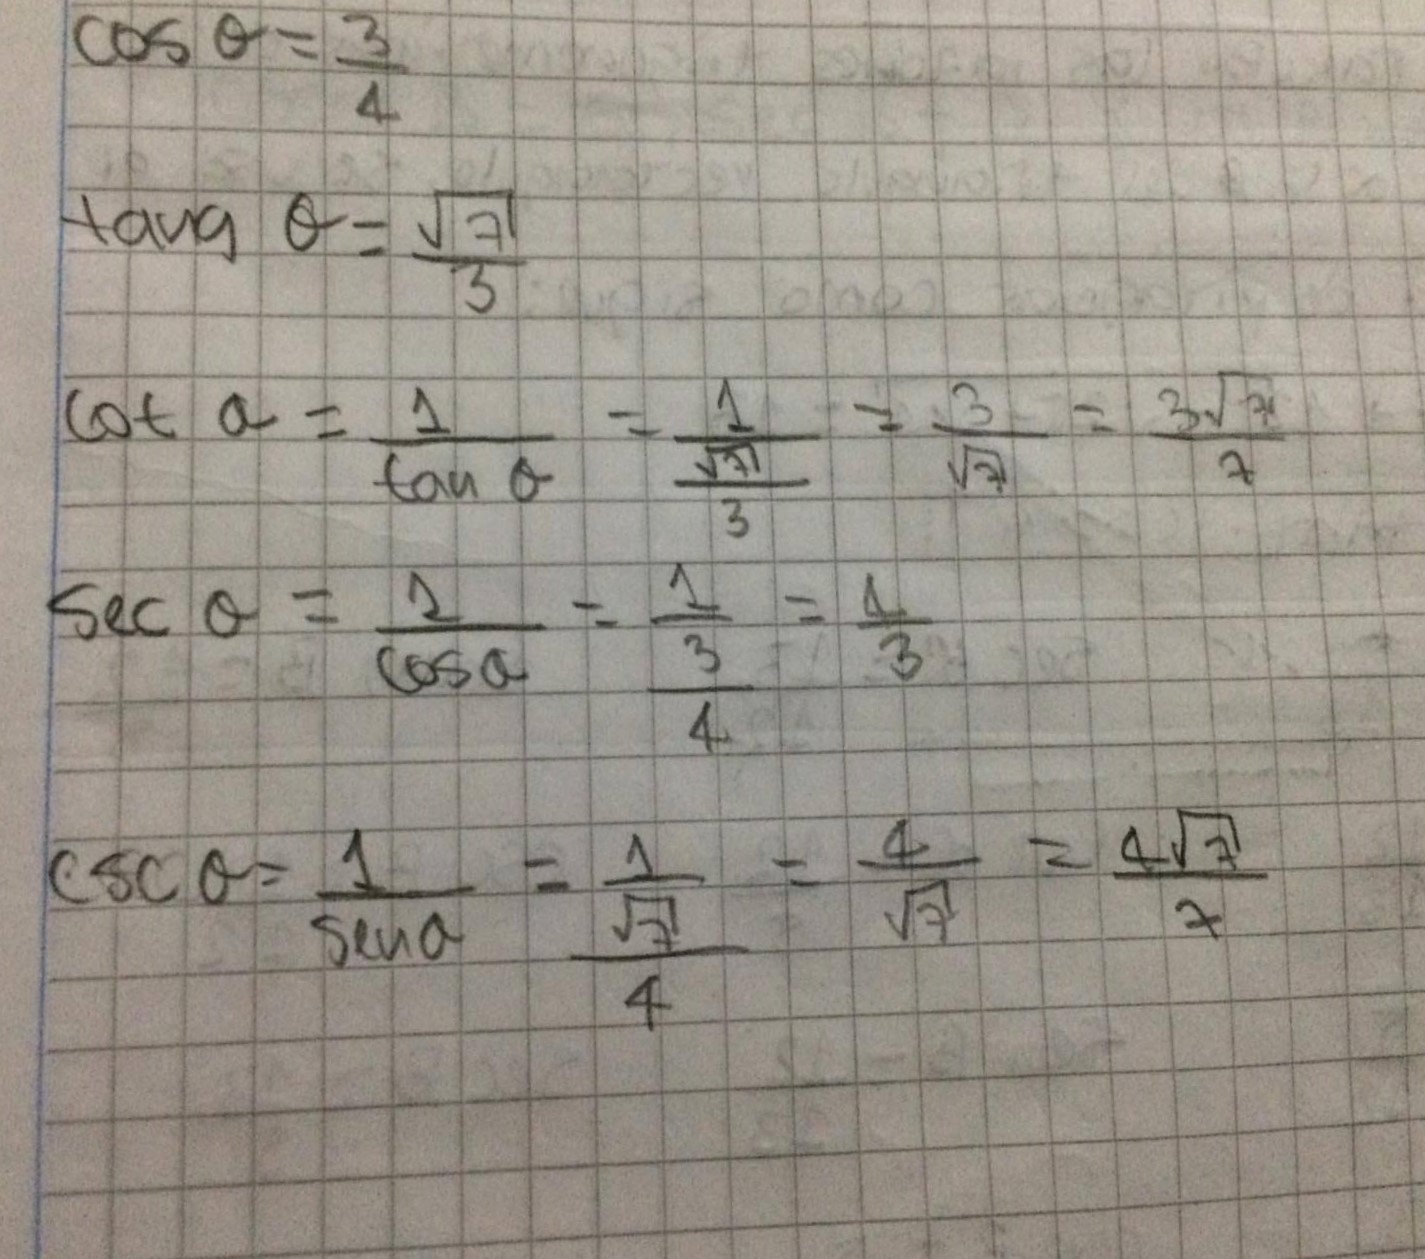 cos θ = 3/4
tang θ = √7/3
cot θ = 1/tan θ = 1/(√7/3) = 3/√7 = 3√7/7
sec θ = 1/cos θ = 1/(3/4) = 1/3
csc θ = 1/sen θ = 1/(√7/4) = 4/√7 = 4√7/7